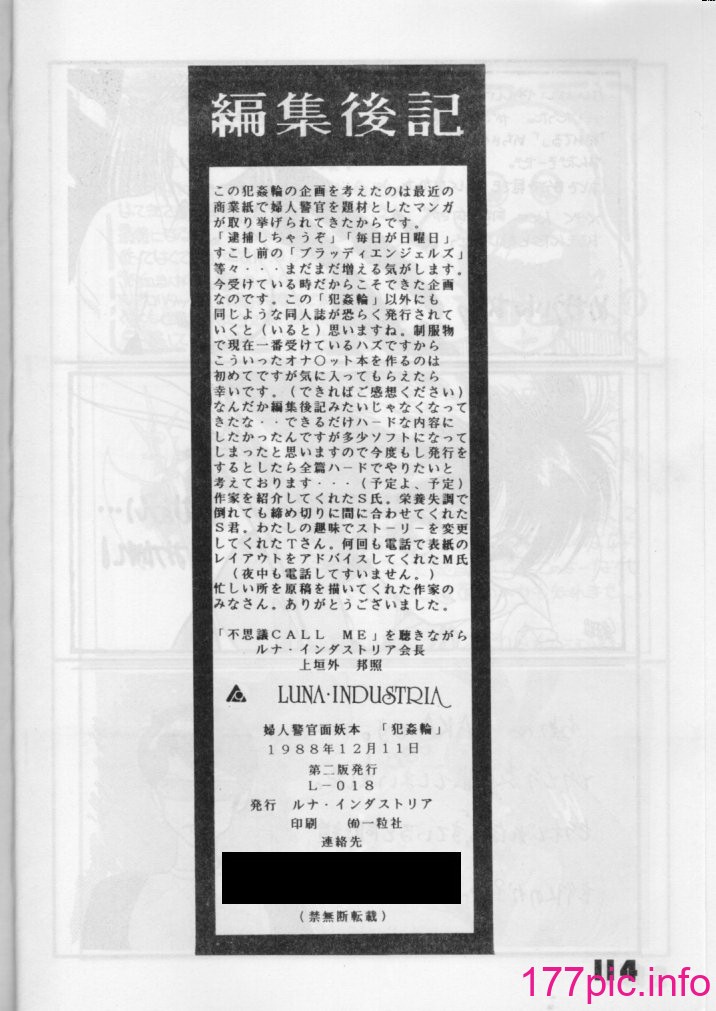 編集後記
この犯姦輪の企画を考えたのは最近の
商業紙で婦人警官を題材としたマンガ
が取り挙げられてきたからです。
「逮捕しちゃうぞ」「毎日が日曜日」
すこし前の「ブラッディエンジェルズ」
等々・・・まだまだ増える気がします。
今受けている時だからこそできた企画
なのです。この「犯姦輪」以外にも
同じような同人誌が恐らく発行されて
いくと（いると）思いますね。制服物
で現在一番受けているハズですから
こういったオナ〇ット本を作るのは
初めてですが気に入ってもらえたら
幸いです。（できればご感想ください）
なんだか編集後記みたいじゃなくなって
きたな・・できるだけハードな内容に
したかったんですが多少ソフトになって
しまったと思いますので今度もし発行を
するとしたら全篇ハードでやりたいと
考えております・・・（予定よ、予定）
作家を紹介してくれたS氏。栄養失調で
倒れても締め切りに間に合わせてくれた
S君。わたしの趣味でストーリーを変更
してくれたTさん。何回も電話で表紙の
レイアウトをアドバイスしてくれたM氏
（夜中も電話してすいません。）
忙しい所を原稿を描いてくれた作家の
みなさん。ありがとうございました。
「不思議CALL ME」を聴きながら
ルナ・インダストリア会長
上垣外 邦照
LUNA・INDUSTRIA
婦人警官面妖本 「犯姦輪」
1988年12月11日
第二版発行
L－018
発行 ルナ・インダストリア
印刷 ㈲一粒社
連絡先
（禁無断転載）
114
177pic.info